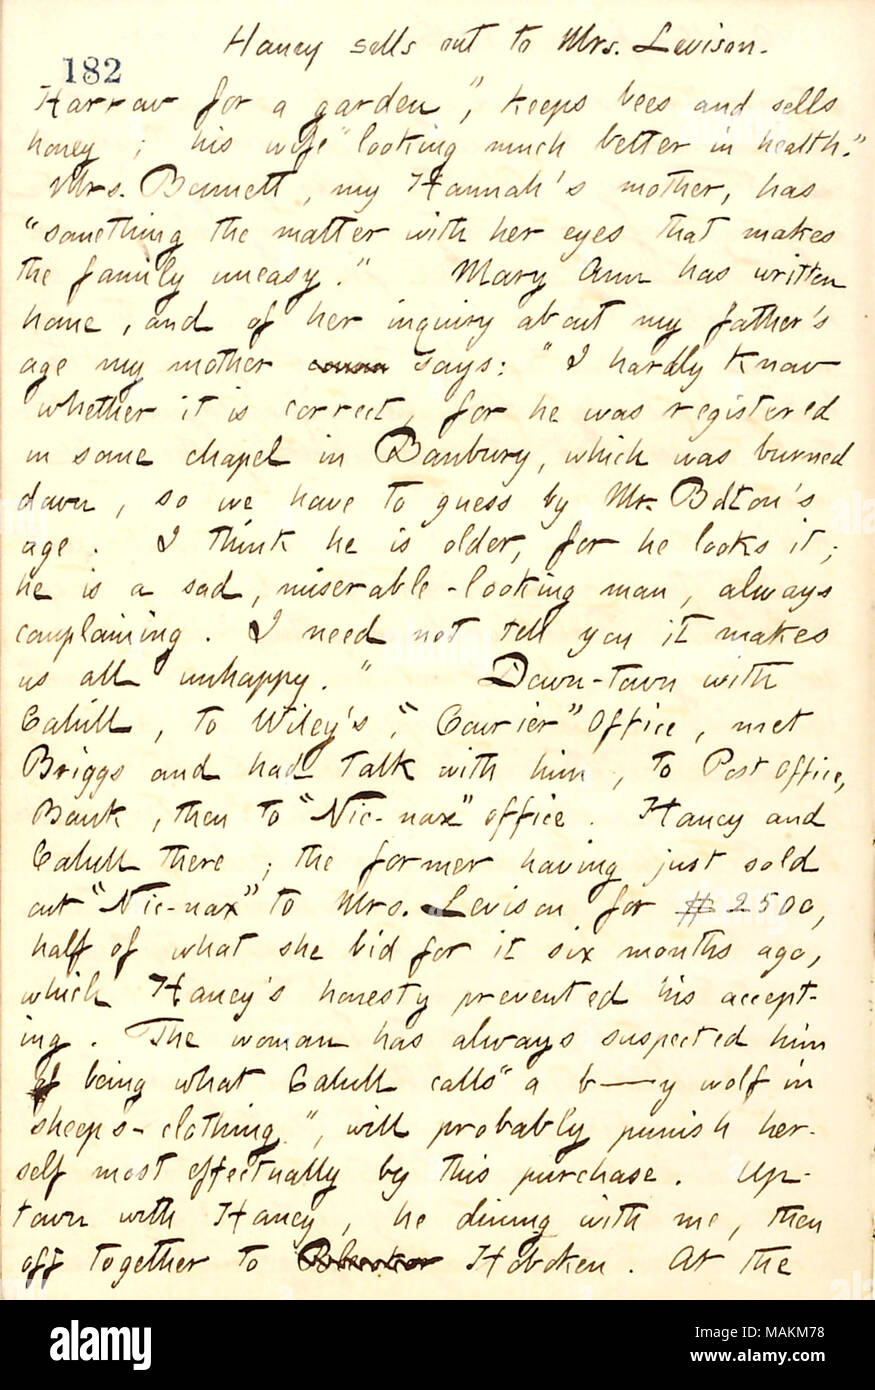 Haney sells out to Mrs. Levison.
182
Harrow for a garden", keeps bees and sells
honey; his wife "looking much better in health."
Mrs. Bennett, my Hannah's mother, has
"something the matter with her eyes that makes
the family uneasy." Mary Ann has written
home, and of her inquiry about my father's
age my mother says: "I hardly know
whether it is correct, for he was registered
in some chapel in Banbury, which was burned
down, so we have to guess by Mr. Bolton's
age. I think he is older, for he looks it;
he is a sad, miserable-looking man, always
complaining. I need not tell you it makes
us all unhappy." Down-town with
Cahill, to Wiley's, "Courier" Office, met
Briggs and had talk with him, to Post Office,
Bank, then to "Nic-nax" office. Haney and
Cahill there; the former having just sold
out "Nic-nax" to Mrs. Levison for $2500,
half of what she bid for it six months ago,
which Haney's honesty prevented his accept-
ing. The woman has always suspected him
of being what Cahill calls "a b——y wolf in
sheep's-clothing", will probably punish her-
self most effectually by this purchase. Up-
town with Haney, he dining with me, then
off together to Hoboken. At the
alamy
Image ID: MAKM78
www.alamy.com